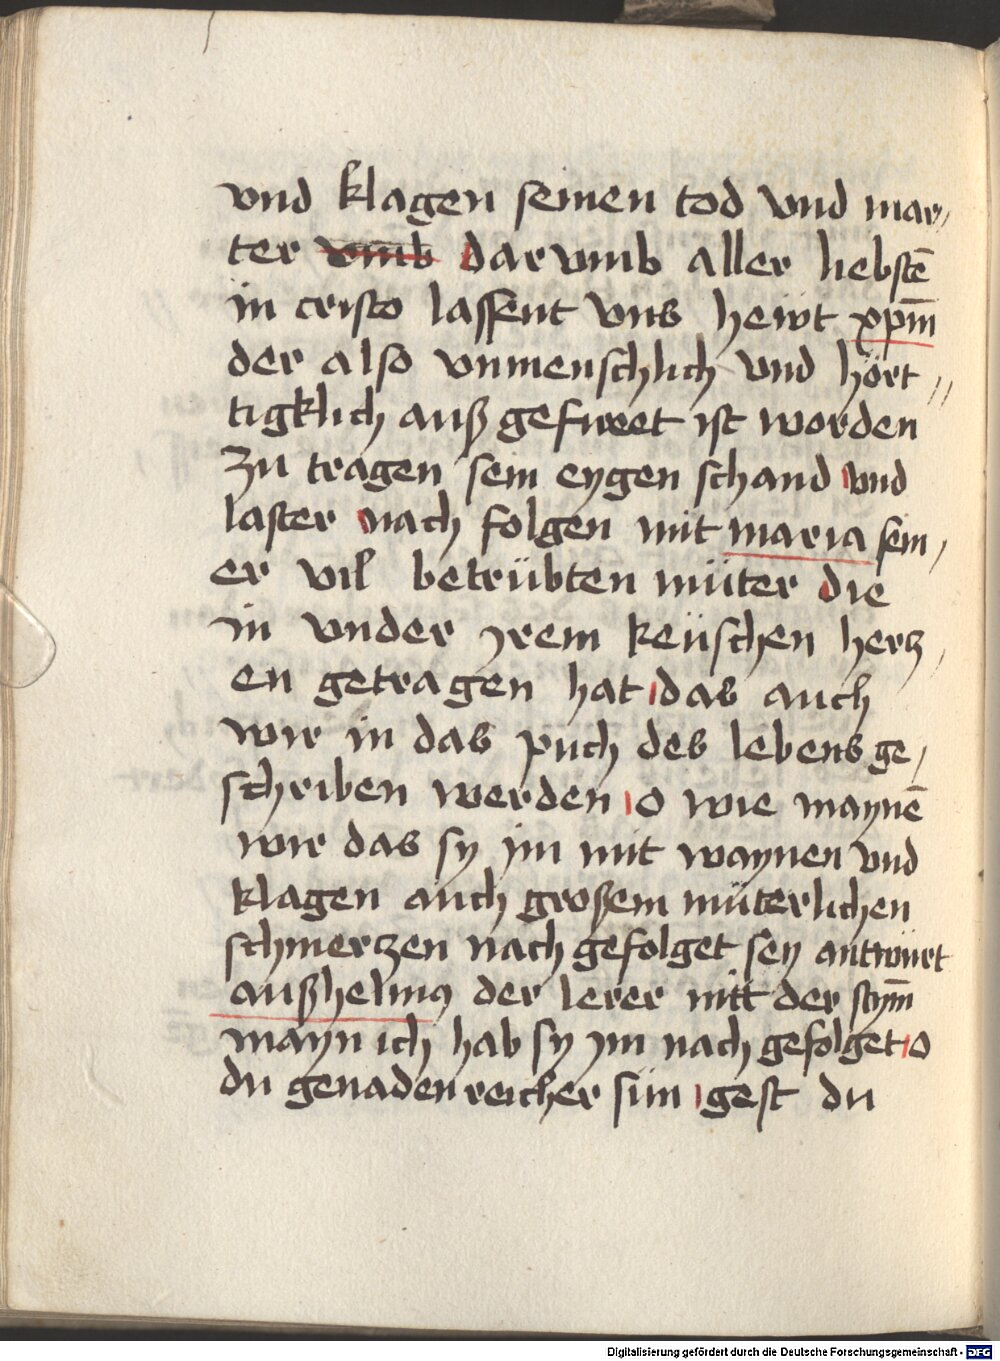 vnd klagen seinen tod vnd mar,
ter vmb dar vmb aller liebstē
in cristo lassent vns hewt xp̄m
der also vnmenschlich vnd hört,,
tigklich auß gefueet ist worden
zu tragen sein eygen schand vnd
laster nach folgen mit maria sein,
er vil betrübten müter die
in vnder yrem keüschen hertz,
en getragen hat das auch
wir in das puch des lebens ge,
schriben werden o wie maynē
wir das sy im mit waynen vnd
klagen auch großem müterlichen
schmerczen nach gefolget sey antwürt
außhelmꝰ der lerer mitt der stym̄
mayn ich hab sy ym nach gefolget o
du genadenreicher sün gest du
Digitalisierung gefördert durch die Deutsche Forschungsgemeinschaft - DFG